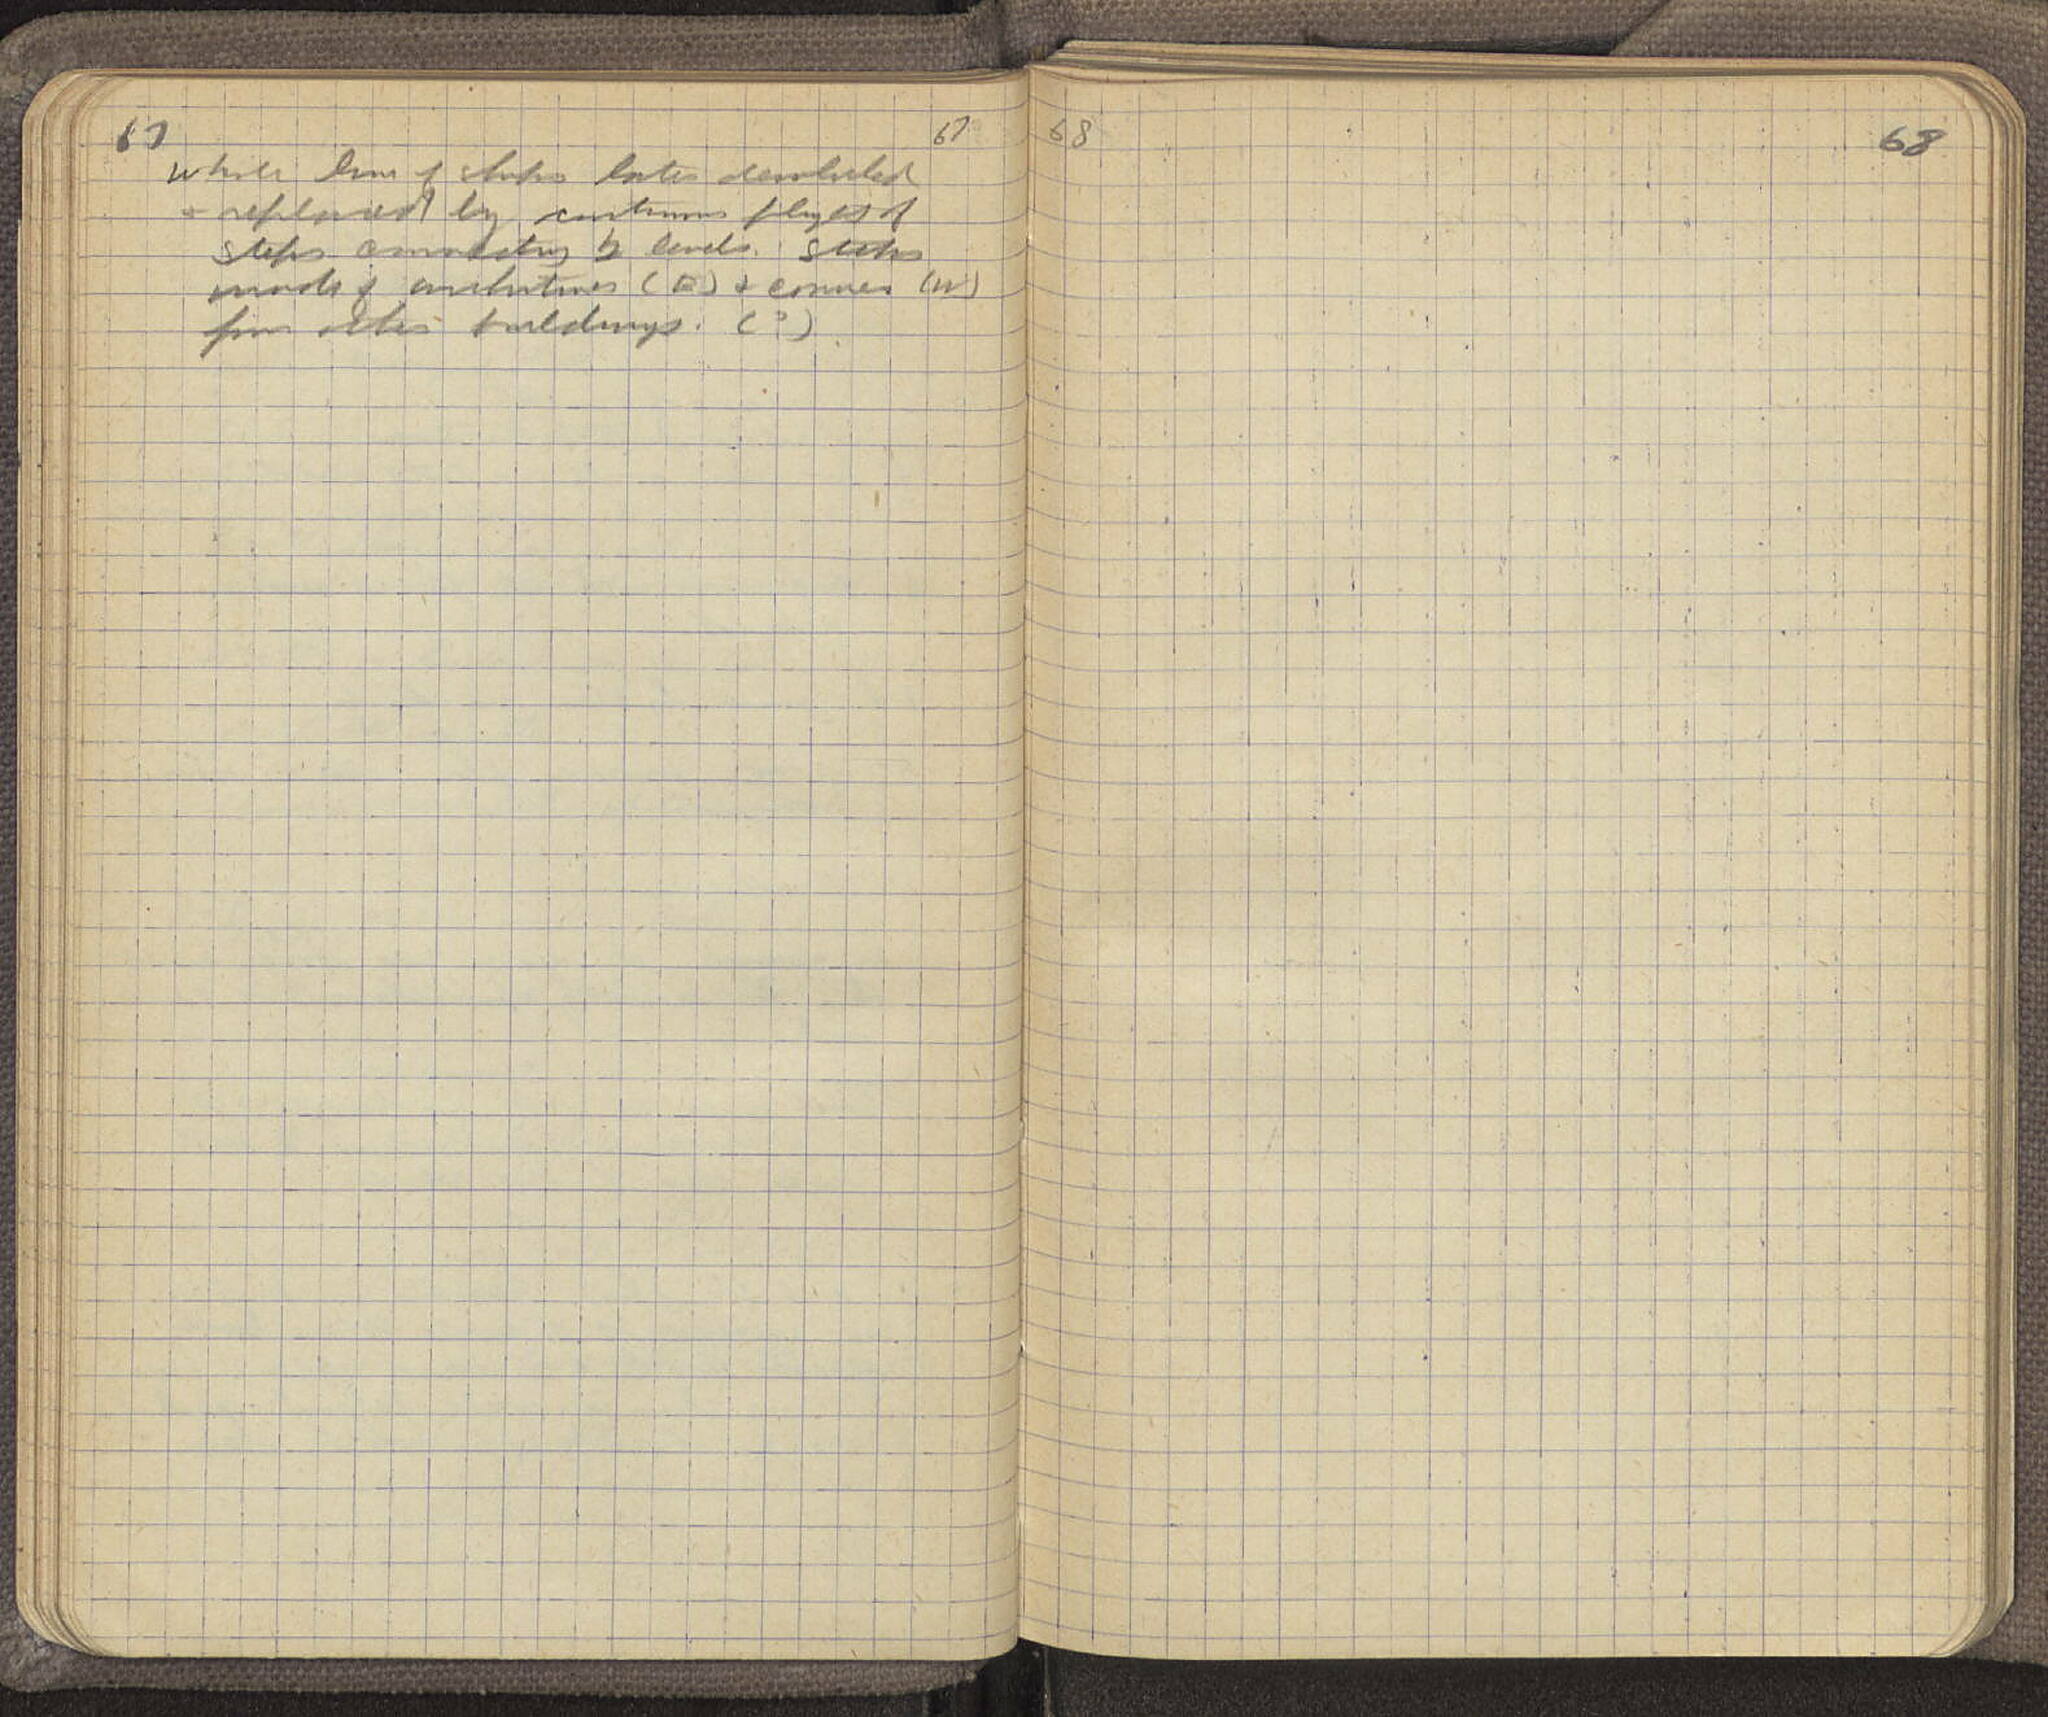 67 67
whole line of shops later demolished
+ replaced by continuous flight of
steps connecting 2 levels. Steps
made of architraves (E) + cornices (W)
from other buildings. (?)
68 68